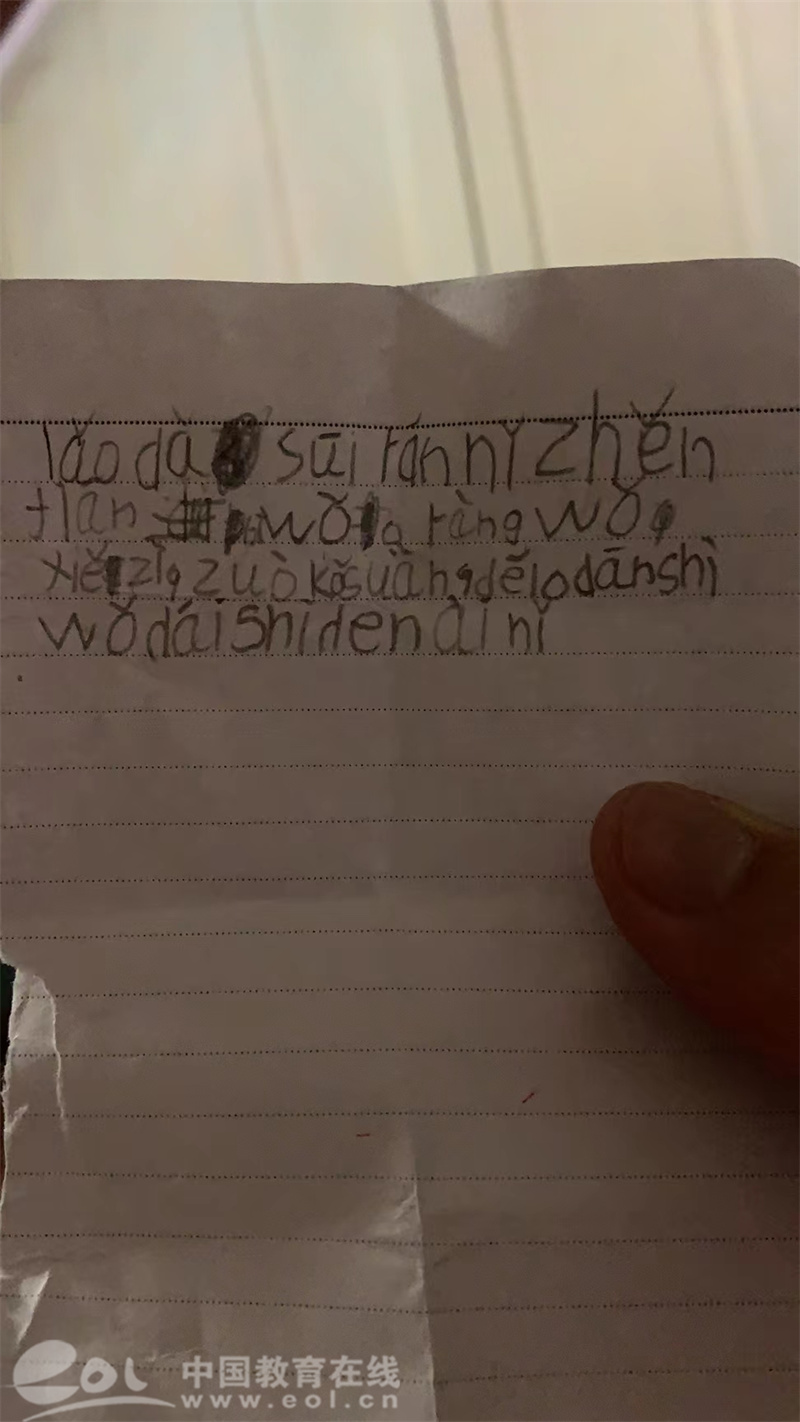 lǎo dà sūi rán nǐ zhěn
tlan wǒ ràng wǒ
xiě zuò kǎsuàng dānshì
wǒ dáishìden ài nǐ
中国教育在线
www.eol.cn